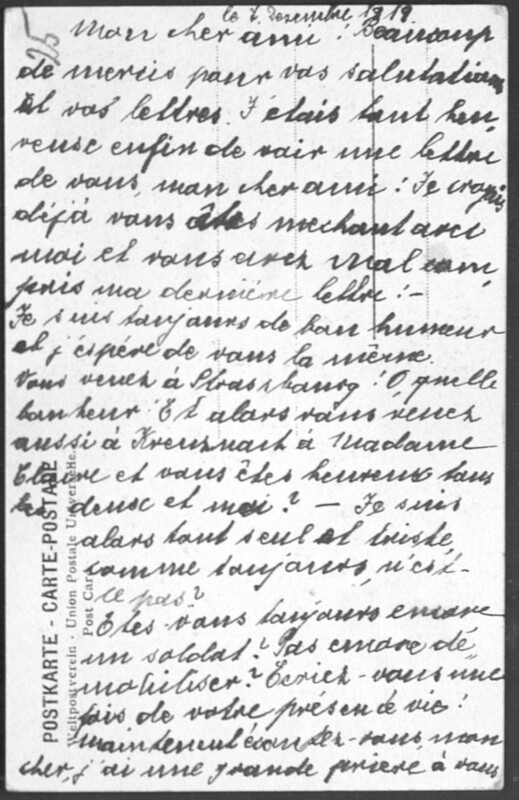 le 7. Dezembre 1919.
25
Mon cher ami! Beaucoup
de mercis pour vos salutations
et vos lettres. J'étais tout heu,
reuse enfin de voir une lettre
de vous, mon cher ami! Je croyais
déjà vous êtes mechant avec
moi et vous avez mal com,
pris ma dernière lettre! –
Je suis toujours de bon humeur
et j'éspére de vous la même.
Vous venez à Straszbourg! O quelle
bonheur! Et alors vous venez
aussi à Kreuznach à Madame
Claire et vous êtes heureux tous
les deuse et moi? – Je suis
alors tout seul et triste,
comme toujours, n'est-
ce pas?
Etes-vous toujours encore
un soldat? Pas encore dé,
mobiliser? Ecriez-vous une
fois de votre présende vie!
Maintenent écoutez-vous, mon
cher, j'ai une grande prière à vous
POSTKARTE - CARTE-POSTALE
Weltpostverein - Union Postale Universelle.
Post Card